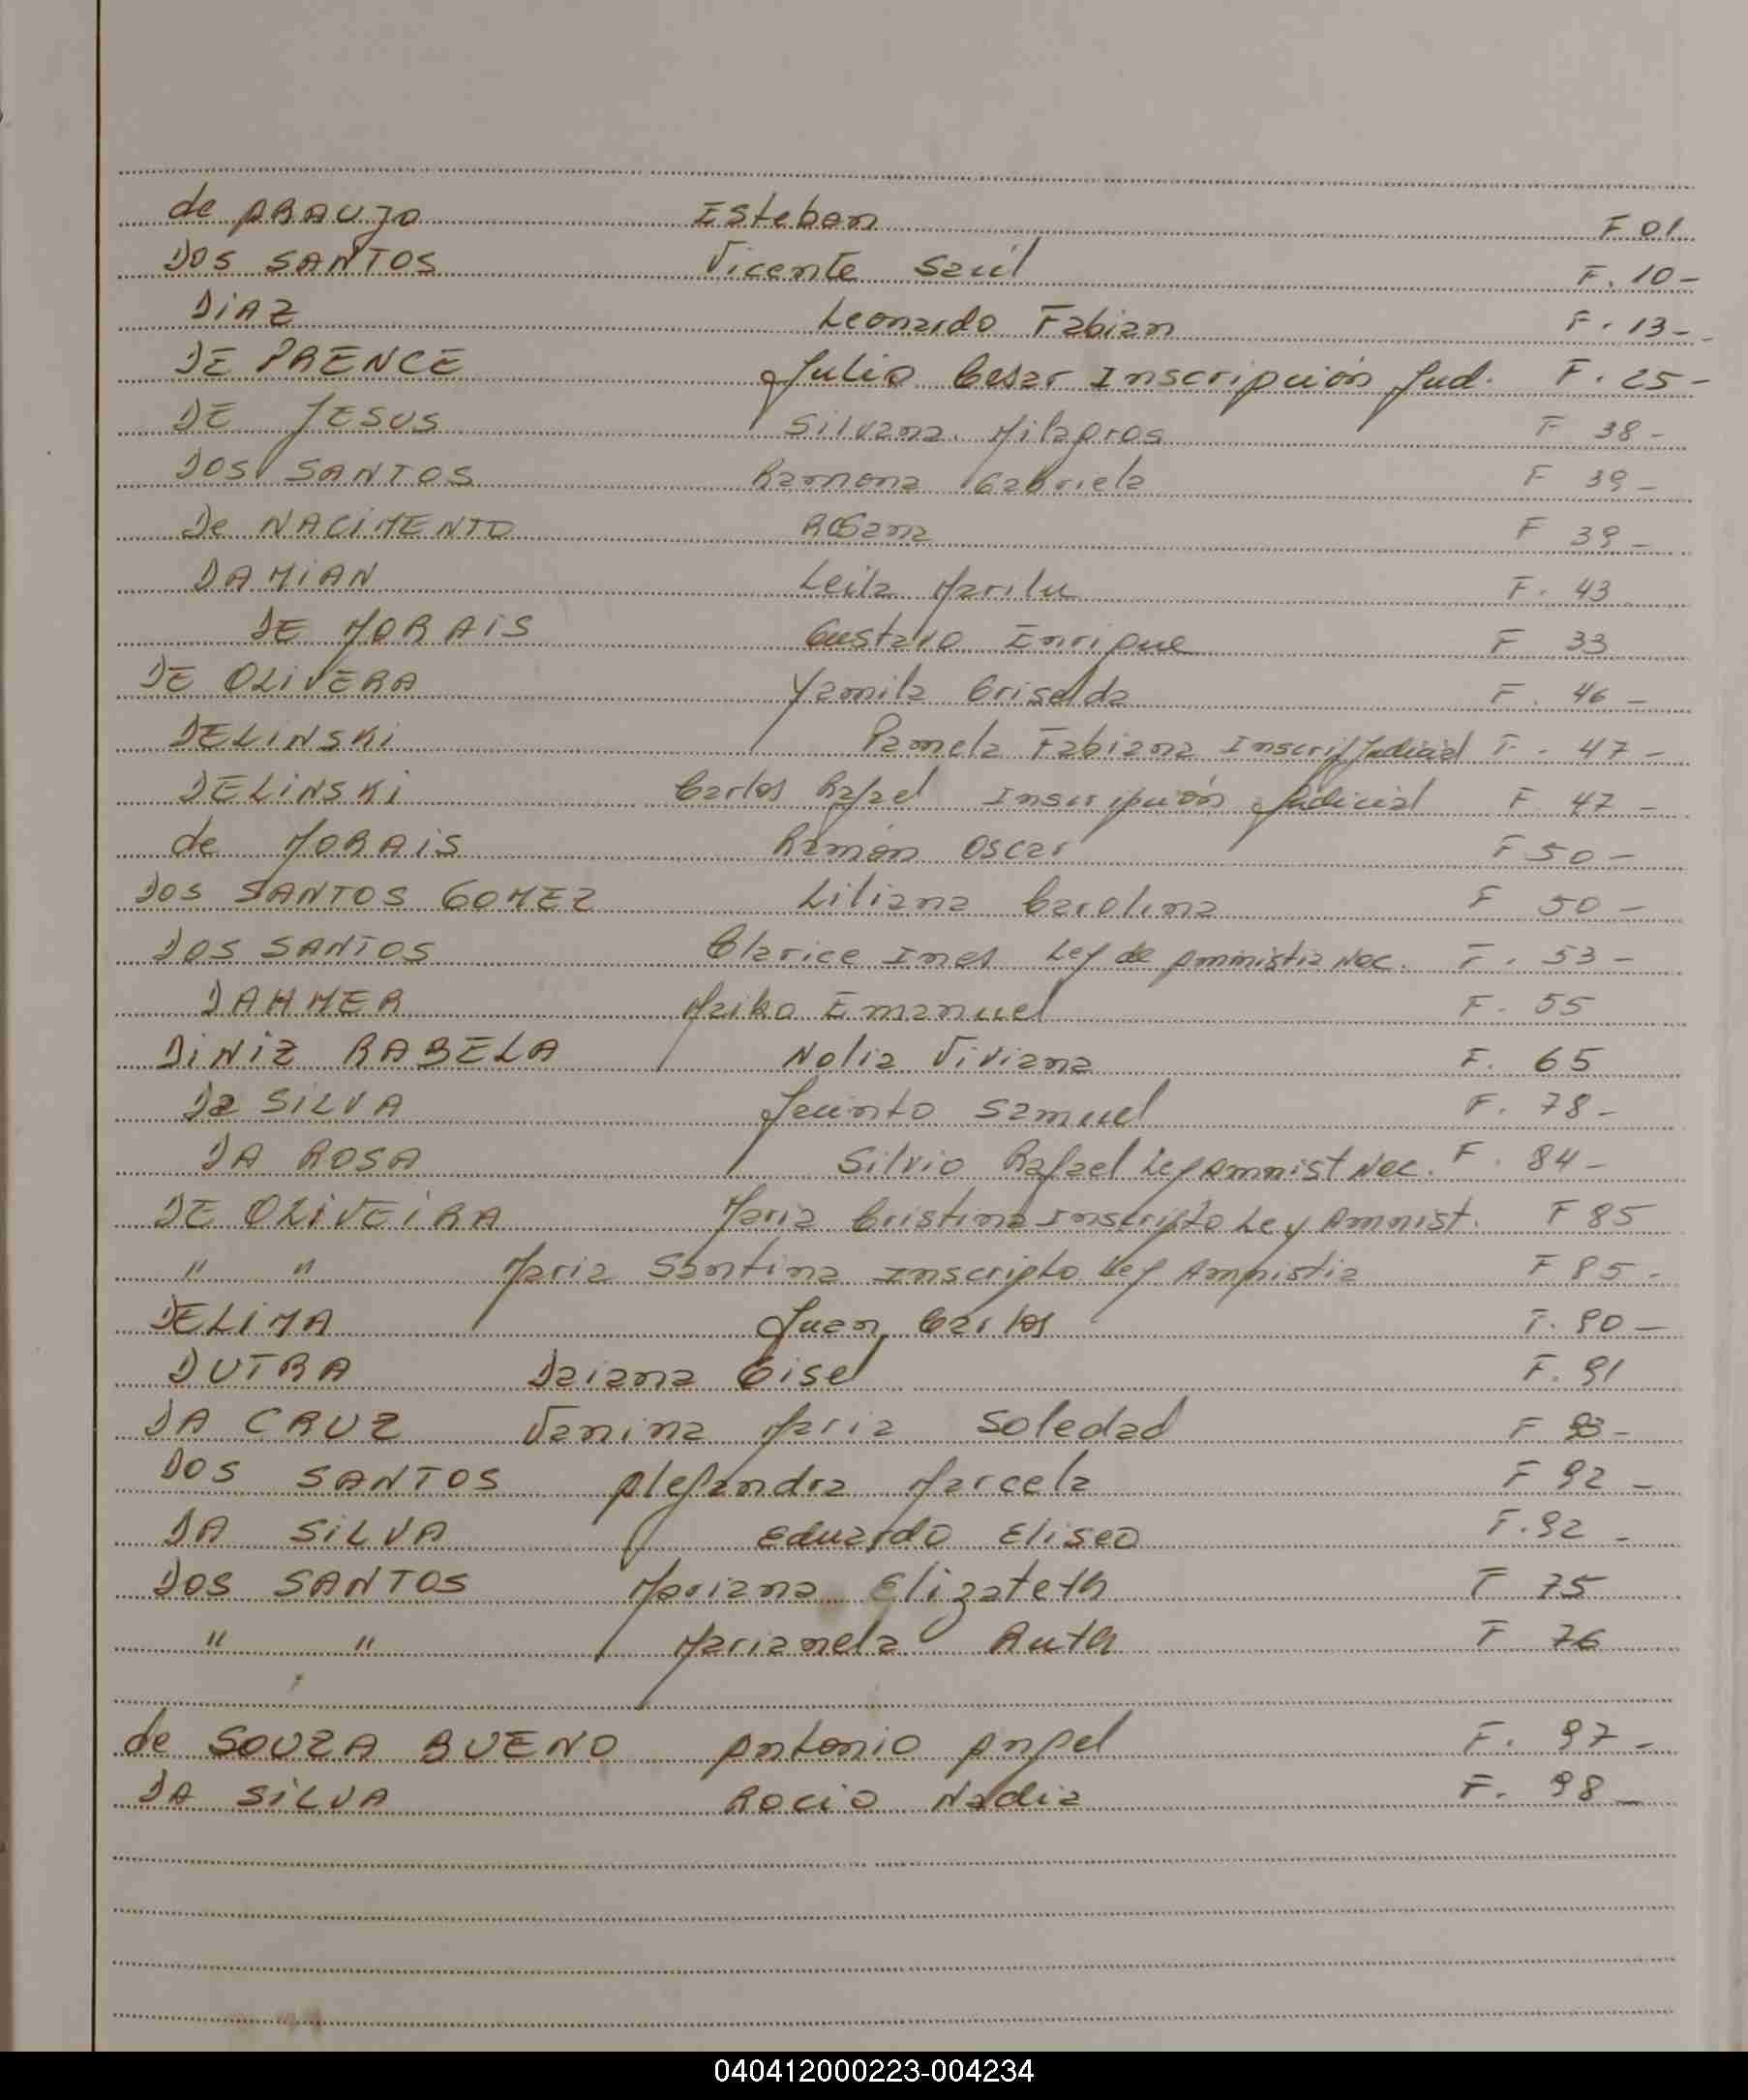 de ARAUJO Esteban F 01
DOS SANTOS Vicente Saúl F. 10-
DiAZ Leonardo Fabian F. 13-
DE PRENCE Julio Cesar Inscripción Jud. F. 25-
DE JESUS Silvana Milagros F 38-
DOS SANTOS Ramona Gabriela F 39-
De NACIMENTO Rosana F 39-
DAMiAN Leila Marilu F. 43
DE MORAiS Gustavo Enrique F 33
DE OLIVERA Yamila Griselda F. 46-
DELINSKi Pamela Fabiana Inscrip Judicial F. 47-
DELINSKi Carlos Rafael Inscripción Judicial F 47-
de MORAiS Ramón Oscar F 50-
DOS SANTOS GOMEZ Liliana Carolina F 50-
DOS SANTOS Clarice Ines Ley de Aministia Nac. F. 53-
DAHMER Maiko Emanuel F. 55
DiNiZ RABELA Nolia Viviana F. 65
Da SILVA Jacinto Samuel F. 78-
DA ROSA Silvio Rafael Ley Amnist Nac. F. 84-
DE OLIVEiRA Maria Cristina Inscripto Ley Amnist. F 85
" " Maria Santina Inscripto Ley Amnistia F 85-
DELiMA Juan Carlos F. 90-
DUTRA Daiana Gisel F. 91
DA CRUZ Vanina Maria Soledad F 93-
DOS SANTOS Alejandra Marcela F 92-
DA SiLVA Eduardo Eliseo F. 92-
DOS SANTOS Mariana Elizateth F 75
" " Marianela Ruth F 76
de SOUZA BUENO Antonio Angel F. 97-
DA SiLVA Rocio Nadia F. 98-
040412000223-004234